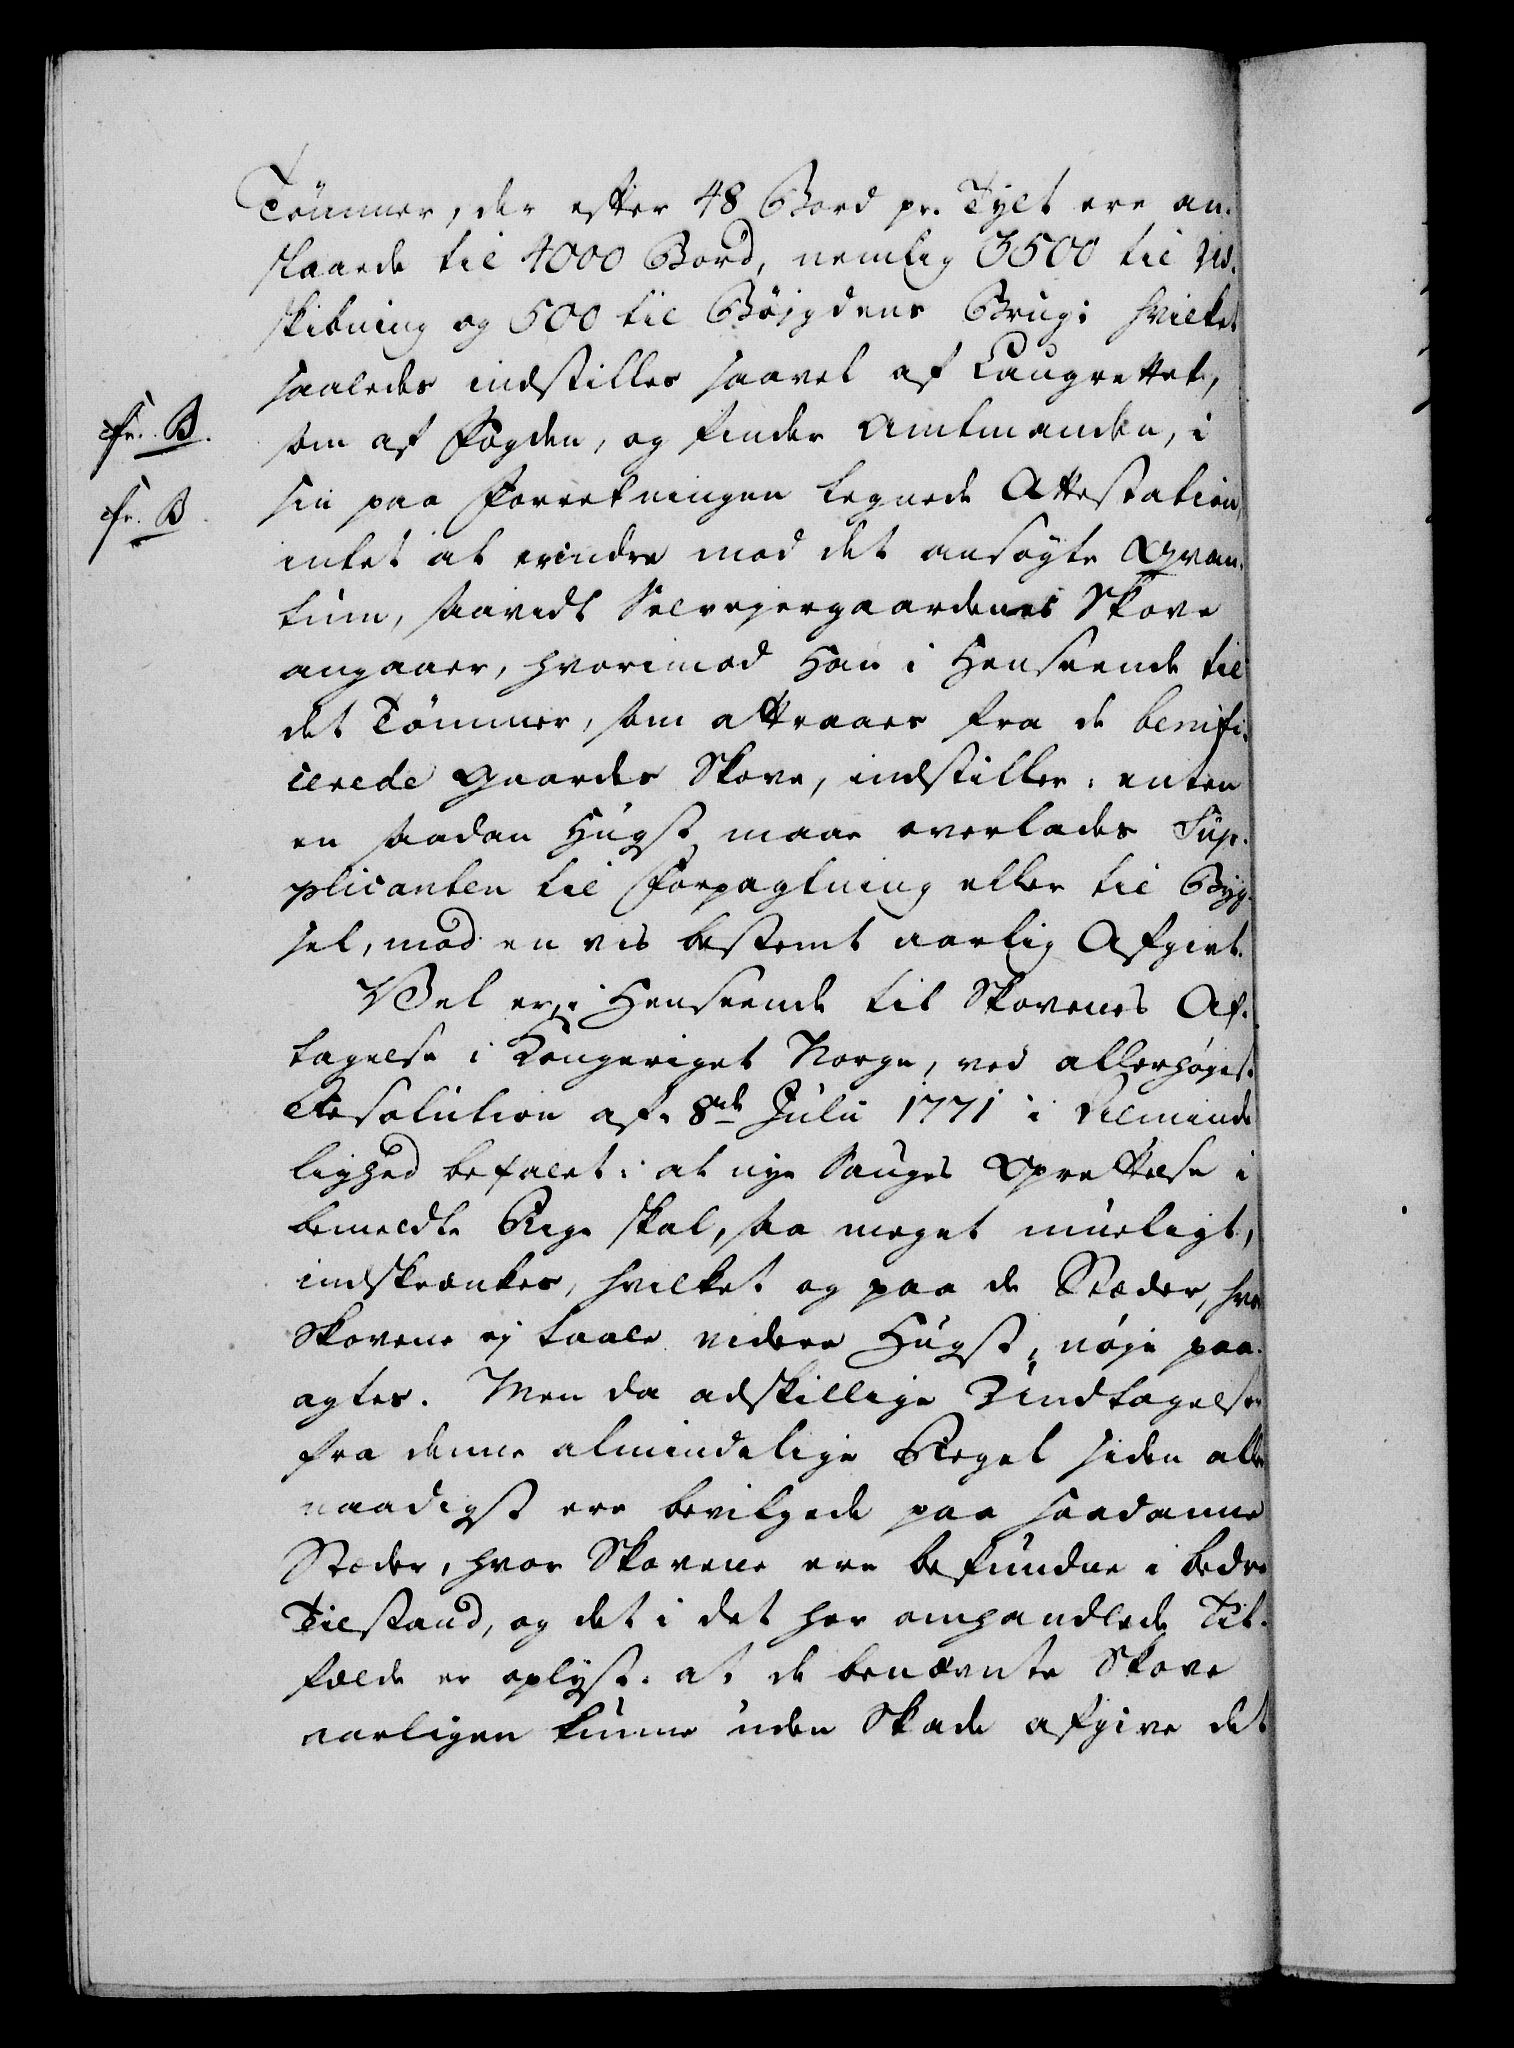 Tømmer, der efter 48 Bord pr. Tylt ere an-
slaaede til 4000 Bord, nemlig 3500 til Ud-
skibning og 500 til Bøygdens Brug: hvilket
saaledes indstilles saavel af Laugrettet,
cfr. B.
som af Fogden, og finder Amtmanden, i
cfr. B.
sin paa Forretningen tegnede Attestation,
intet at erindre mod det ansøgte Qvan-
tum, saavidt Selvejergaardenes Skove
angaaer, hvorimod Han i Henseende til
det Tømmer, som attraaes fra de benifi-
cerede Gaardes Skove, indstiller: enten
en saadan Hugst maae overlades Sup-
plicanten til Forpagtning eller til Byg-
sel, mod en vis bestemt aarlig Afgivt.
Vel er, i Henseende til Skovenes Af-
tagelse i Kongeriget Norge, ved allerhøjest
Resolution af 8de Julii 1771 i Alminde
lighed befalet: at nye Sauges Oprettelse i
bemeldte Rige skal, saa meget mueligt,
indskrænkes, hvilket og paa de Stæder, hvor
Skovene ej taale videre Hugst, nøje paa-
agtes. Men da adskillige Undtagelser
fra denne almindelige Regel siden aller
naadigst ere bevilgede paa saadanne
Stæder, hvor Skovene ere befundne i bedre
Tilstand, og det i det her omhandlede Til-
fælde er oplyst: at de benævnte Skove
aarligen kunne uden Skade afgive det